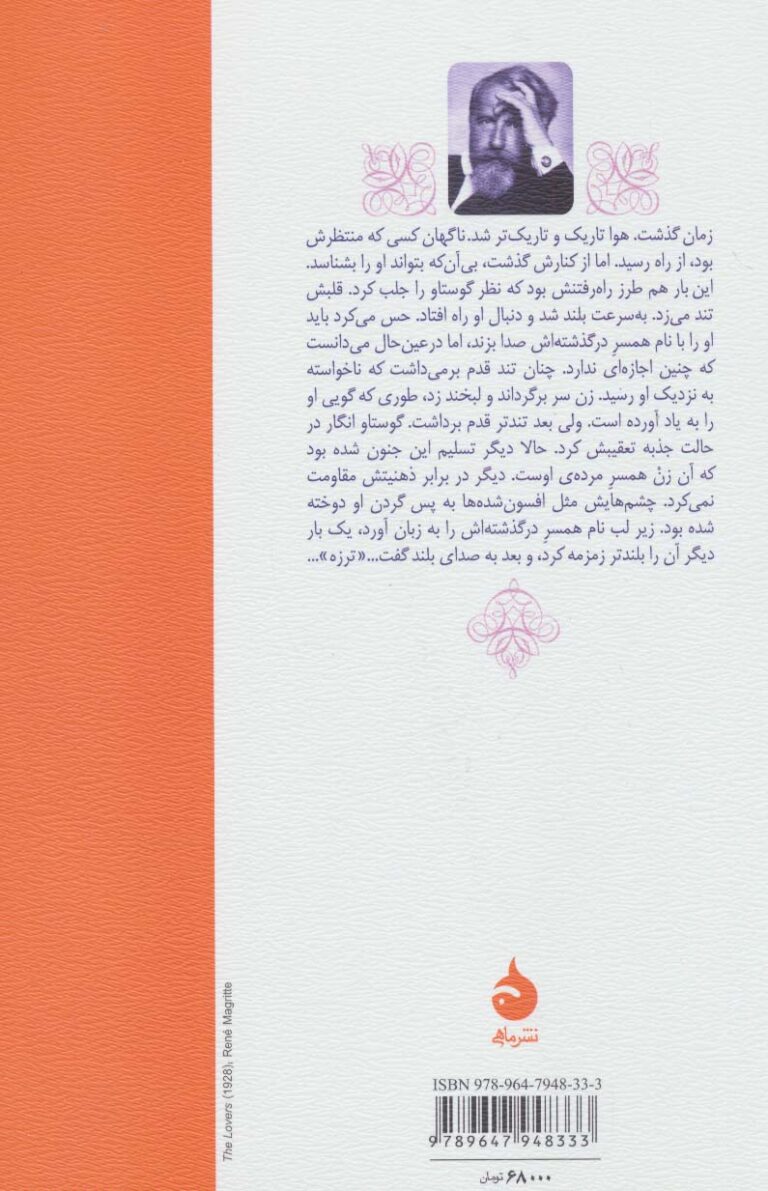 زمان گذشت. هوا تاریک و تاریک‌تر شد.ناگهان کسی که منتظرش
بود، از راه رسید. اما از کنارش گذشت، بی‌آن‌که بتواند او را بشناسد.
این بار هم طرز راه‌رفتنش بود که نظر گوستاو را جلب کرد. قلبش
تند می‌زد. به‌سرعت بلند شد و دنبال او راه افتاد. حس می‌کرد باید
او را با نام همسرِ درگذشته‌اش صدا بزند، اما درعین‌حال می‌دانست
که چنین اجازه‌ای ندارد. چنان تند قدم برمی‌داشت که ناخواسته
به نزدیک او رسید. زن سر برگرداند و لبخند زد، طوری که گویی او
را به یاد آورده است. ولی بعد تندتر قدم برداشت. گوستاو انگار در
حالت جذبه تعقیبش کرد. حالا دیگر تسلیم این جنون شده بود
که آن زنْ همسرِ مرده‌ی اوست. دیگر در برابر ذهنیتش مقاومت
نمی‌کرد. چشم‌هایش مثل افسون‌شده‌ها به پس گردن او دوخته
شده بود. زیر لب نام همسرِ درگذشته‌اش را به زبان آورد، یک بار
دیگر آن را بلندتر زمزمه کرد، و بعد به صدای بلند گفت...«ترزه»...
The Lovers (1928), René Magritte
نشرماهی
ISBN 978-964-7948-33-3
9 789647 948333
۶۸۰۰۰ تومان